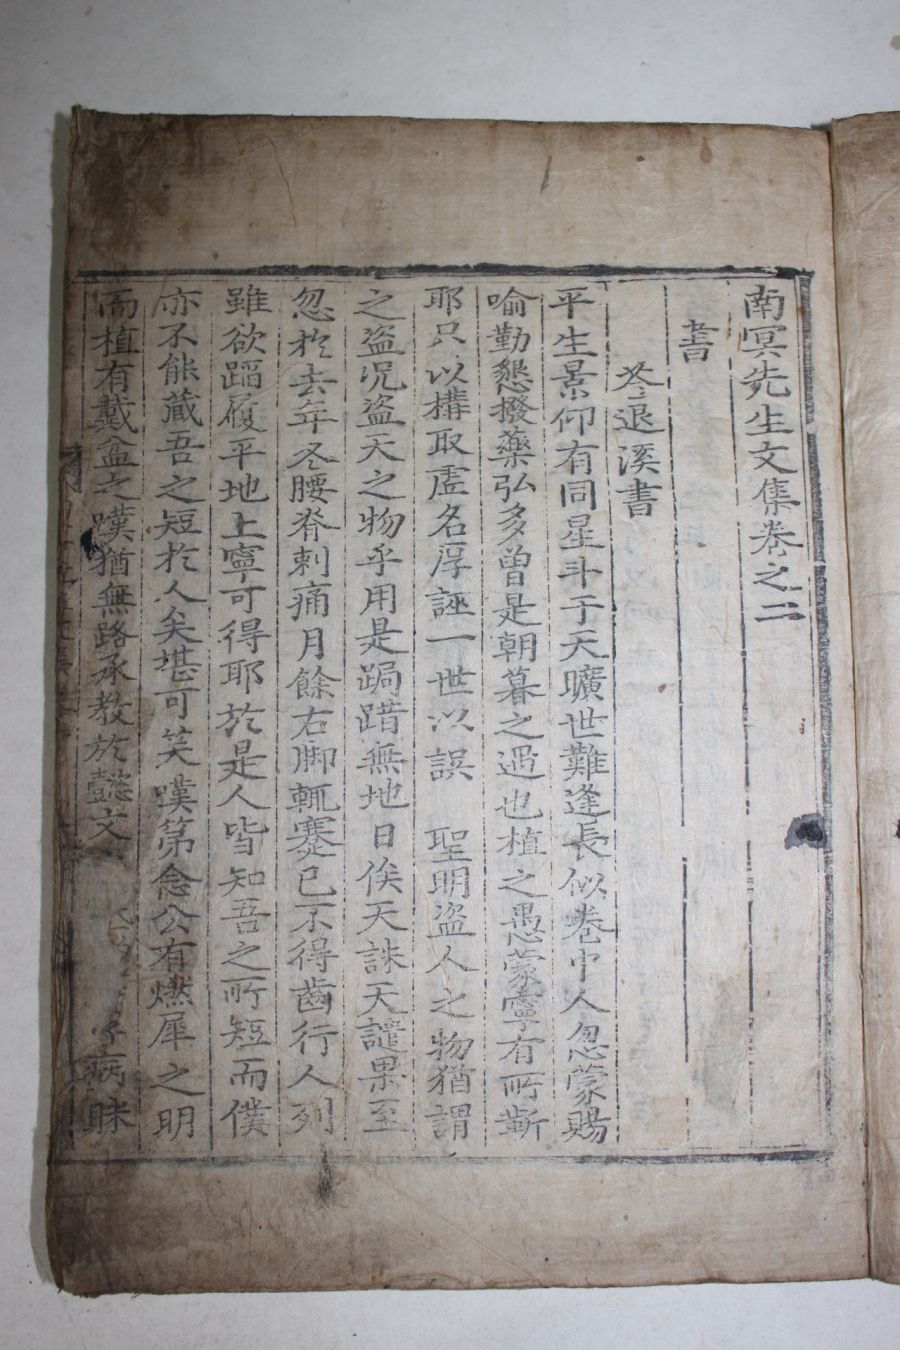 南冥先生文集卷之二
書
答退溪書
平生景仰有同星斗于天曠世難逢長似卷中人忽蒙賜
喩勤懇撥藥弘多曾是朝暮之遇也植之愚蒙寧有所蘄
耶只以構取虛名厚誣一世以誤 聖明盜人之物猶謂
之盜况盜天之物乎用是跼蹐無地日俟天誅天譴果至
忽於去年冬腰脊刺痛月餘右脚輒蹇已不得齒行人列
雖欲蹈履平地上寧可得耶於是人皆知吾之所短而僕
亦不能藏吾之短於人矣堪可笑嘆第念公有燃犀之明
而植有戴盆之嘆猶無路承敎於懿文 病眛